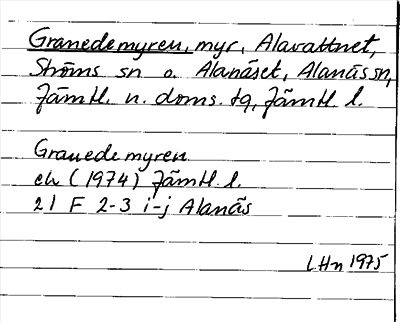 Granedemyren, myr, Alavattnet,
Ströms sn o. Alanäset, Alanäs sn,
Jämtl. n. doms. tg, Jämtl l.
Granedemyren
ek (1974) Jämtl. l.
21 F 2-3 i-j Alanäs
LHn 1975